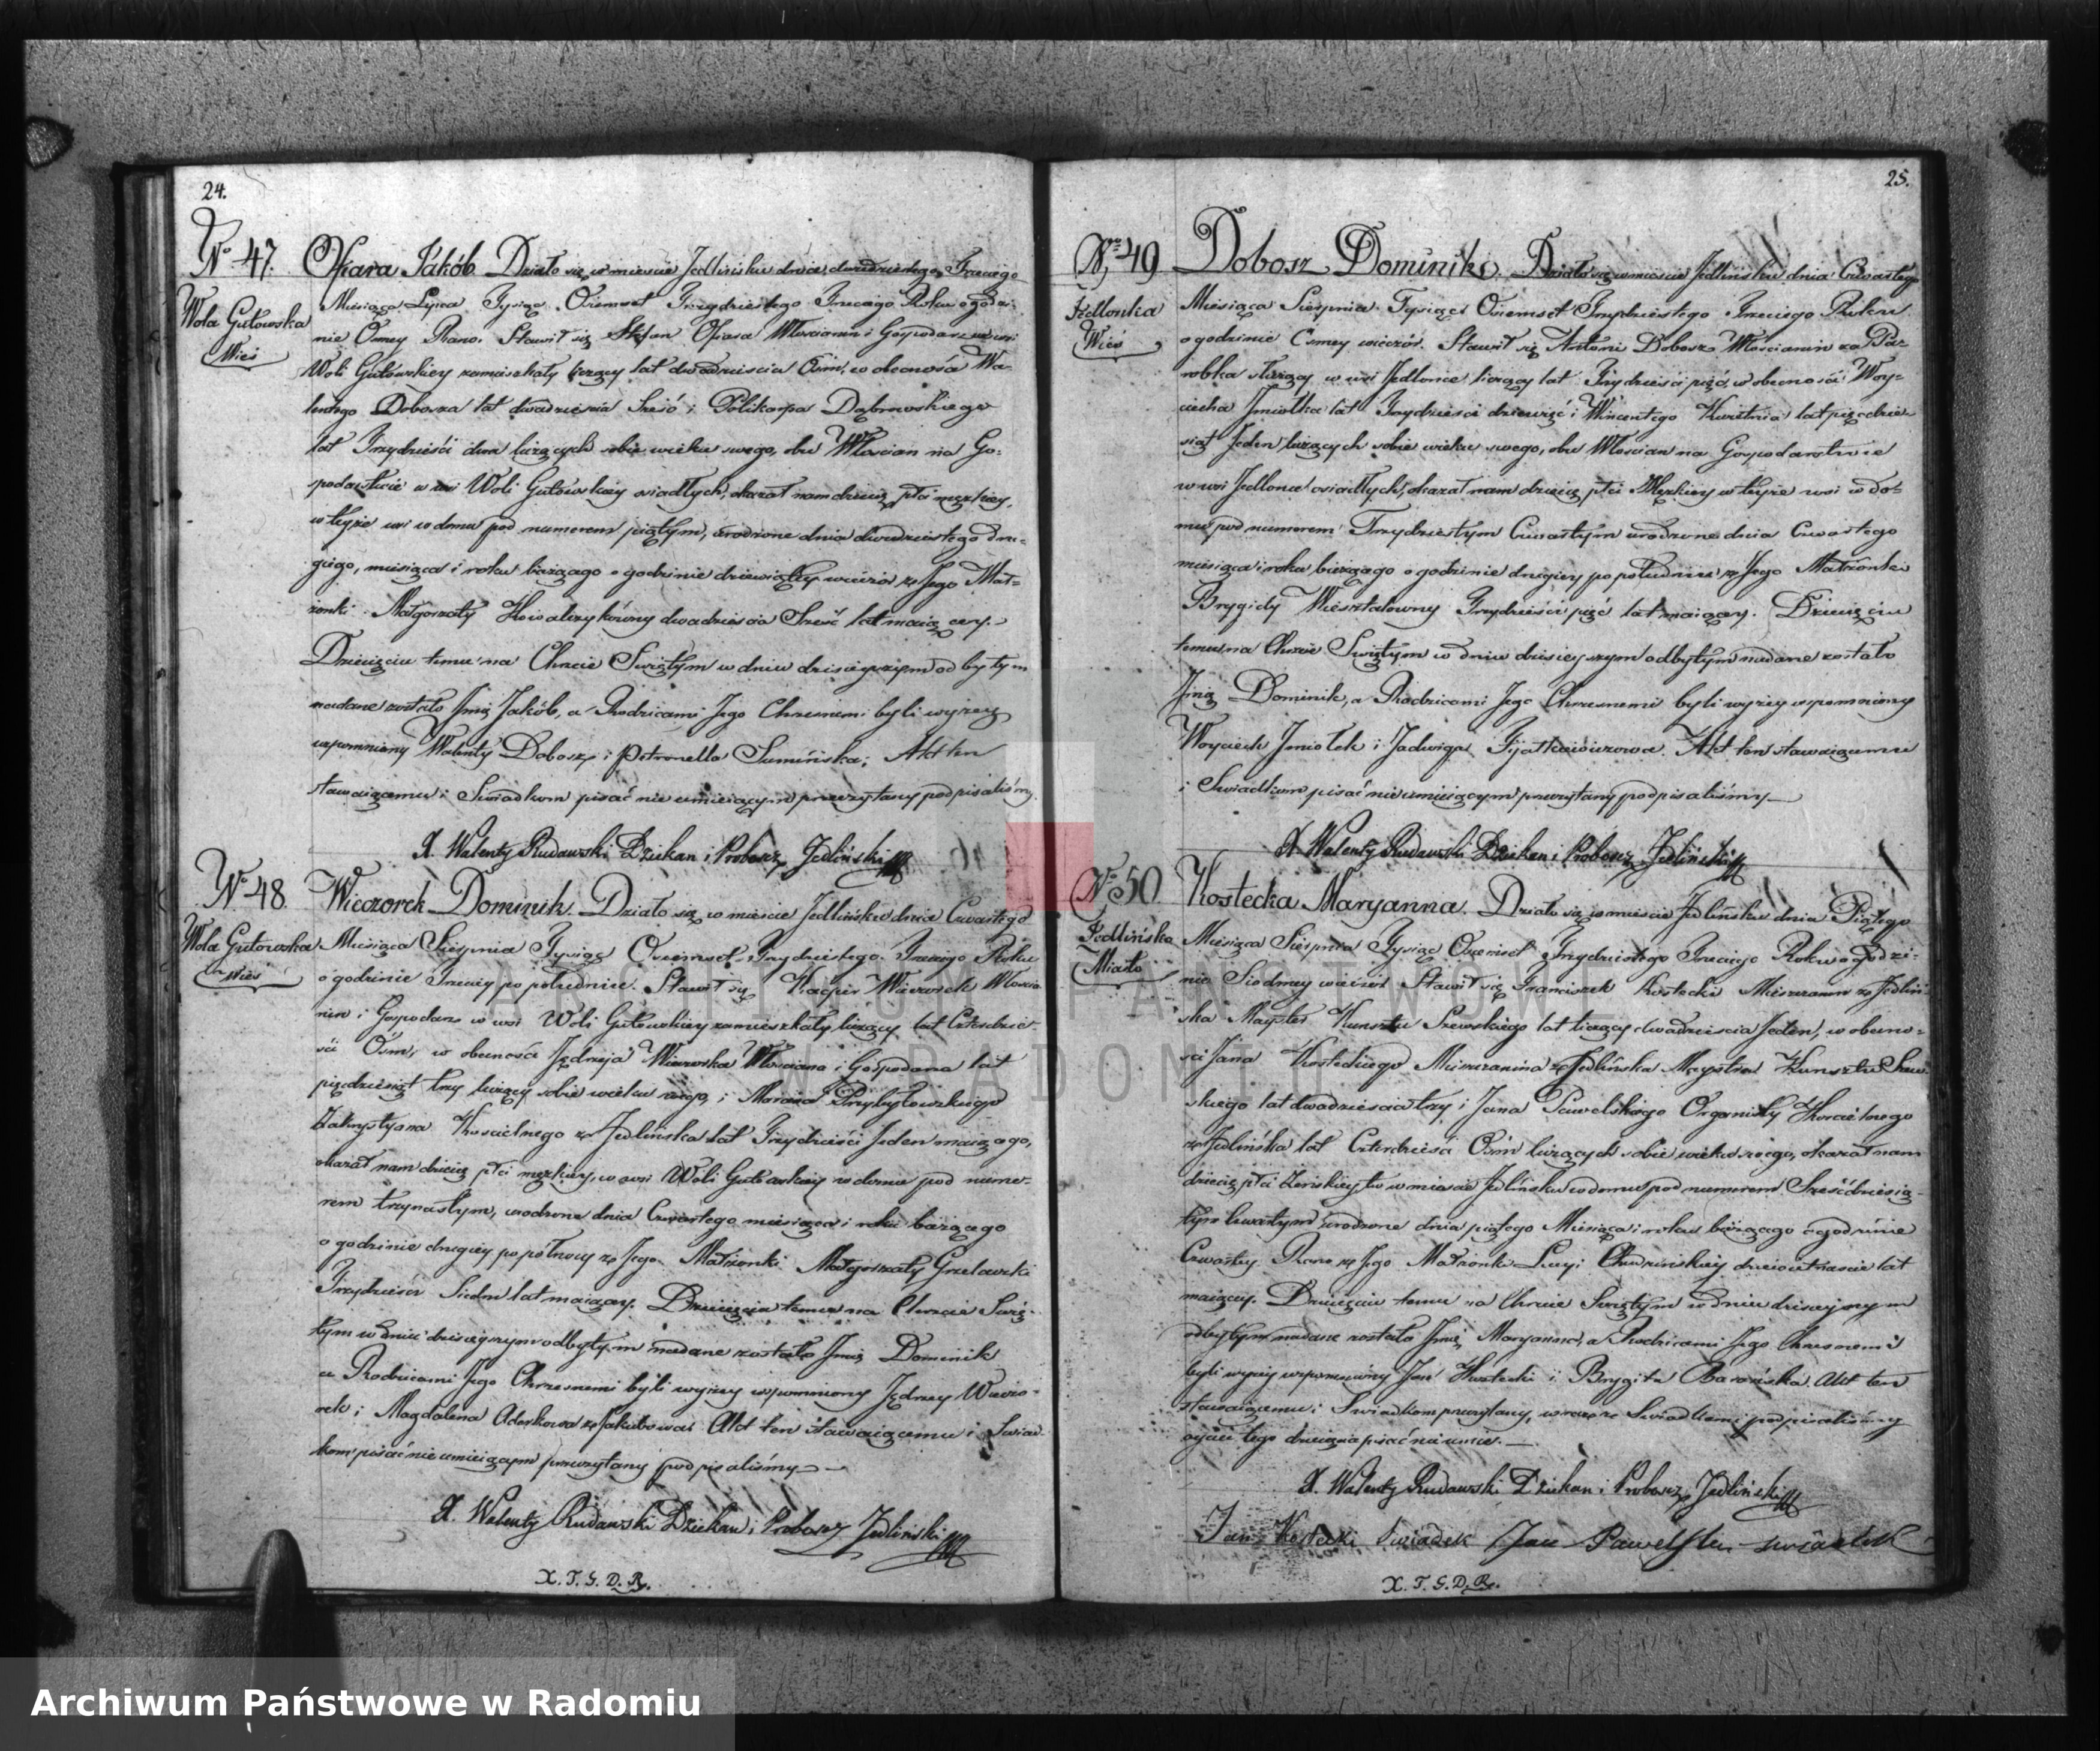 24.
No 47.
Wola Gutowska
Wieś
Ofiara Jakób. Działo się w mieście Jedlińsku dnia dwudziestego Trzeciego
Miesiąca Lipca Tysiąc Ośmset Trzydziestego Trzeciego Roku o godzi-
nie Osmey Rano. Stawił się Stefan Ofiara Włoscianin i Gospodarz we wsi
Woli Gutowskiey zamieszkały liczący lat dwadzieścia Ośm, w obecności Wa-
lentego Dobosza lat dwadzieścia Sześć i Polikarpa Dąbrowskiego
lat Trzydzieści dwa liczących sobie wieku swego, obu Włościan na Go-
spodarstwie w wsi Woli Gutowskiey osiadłych, okazał nam dziecię płci męzkiey,
w teyże wsi w domu pod numerem piątym, urodzone dnia dwudziestego dru-
giego, miesiąca i roku bieżącego o godzinie dziewiątey wieczór z Jego Mał-
żonki Małgorzaty Kowalczykówny dwadzieścia Sześć lat maiącey.
Dziecięciu temu na Chrzcie Swiętym w dniu dzisieyszym odbytym
nadane zostało Imię Jakób, a Rodzicami Jego Chrzesnemi byli wyżey
wspomniony Walenty Dobosz i Petronella Sumińska; Akt ten
stawaiącemu i Swiadkom pisać nie umieiącym przeczytany podpisaliśmy.
X. Walenty Rudawski Dziekan i Probosz Jedliński
No 48
Wola Gutowska
Wieś
Wieczorek Dominik. Działo się w mieście Jedlińsku dnia Czwartego
Miesiąca Sierpnia Tysiąc Ośmset Trzydziestego Trzeciego Roku
o godzinie Trzeciey po południu. Stawił się Kacper Wieczorek Włościa-
nin i Gospodarz w wsi Woli Gutowskiey zamieszkały, liczący lat Czterdzie-
ści Ośm, w obecności Jędrzeja Wieczorka Włoscianina i Gospodarza lat
pięćdziesiąt trzy liczący sobie wieku swego, i Marcina Przybyłowskiego
Zakrystyana Koscielnego z Jedlińska lat Trzydzieści Jeden maiącego,
okazał nam dziecię płci męzkiey, w wsi Woli Gutowskiey w domu pod nume-
rem trzynastym, urodzone dnia Czwartego miesiąca i roku bieżącego
o godzinie drugiey po północy z Jego Małżonki Małgorzaty Grzelawski
Trzydzieści Siedm lat maiącey. Dziecięciu temu na Chrzcie Swię-
tym w dniu dzisieyszym odbytym nadane zostało Imię Dominik
a Rodzicami Jego Chrzesnemi byli wyżey wspomniony Jędrzey Wieczo-
rek i Magdalena Aderkowa z Jakubowa. Akt ten stawaiącemu i Swiad-
kom pisać nie umieiącym przeczytany podpisaliśmy
X. Walenty Rudawski Dziekan i Probosz Jedliński
X. T. G. D. R.
25.
Nr 49
Jedlonka
Wieś
Dobosz Dominik. Działo się w mieście Jedlińsku dnia Czwartego
Miesiąca Sierpnia Tysiąc Ośmset Trzydziestego Trzeciego Roku
o godzinie Osmey wieczór. Stawił się Antoni Dobosz Włościanin za Pa-
robka służący w wsi Jedlonce liczący lat Trzydzieści pięć, w obecności Woy-
ciecha Imiołka lat Trzydzieści dziewięć i Wincentego Kwietnia lat pięćdzie-
siąt Jeden liczących sobie wieku swego, obu Włościan na Gospodarstwie
w wsi Jedlonce osiadłych, okazał nam dziecię płci Męzkiey w teyże wsi w do-
mu pod numerem Trzydziestym Czwartym urodzone dnia Czwartego
miesiąca i roku bieżącego o godzinie drugiey po południu z Jego Małżonki
Brygidy Trzydzieści pięć lat maiącey. Dziecięciu
temu na Chrzcie Swiętym w dniu dzisieyszym odbytym nadane zostało
Imię Dominik, a Rodzicami Jego Chrzesnemi byli wyżey wspomniony
Woyciech Imiołek i Jadwiga Fijałkowiczowa. Akt ten stawaiącemu
i Swiadkom pisać nie umieiącym przeczytany podpisaliśmy
X. Walenty Rudawski Dziekan i Probosz Jedliński
No 50
Jedlińsko
Miasto
Kostecka Maryanna. Działo się w mieście Jedlińsku dnia Piątego
Miesiąca Sierpnia Tysiąc Ośmset Trzydziestego Trzeciego Roku o godzi-
nie Siodmey wieczór Stawił się Franciszek Kostecki Mieszczanin z Jedliń-
ska Mayster Kunsztu Szewskiego lat liczący dwadzieścia Jeden, w obecno-
ści Jana Kosteckiego Mieszczanina z Jedlińska Maystra Kunsztu Szew-
skiego lat dwadzieścia trzy i Jana Pawelskiego Organisty Koscielnego
z Jedlińska lat Czterdzieści Ośm liczących sobie wieku swego, okazał nam
dziecię płci Żeńskiey tu w mieście Jedlińsku w domu pod numerem Sześćdziesią-
tym Czwartym urodzone dnia piątego Miesiąca i roku bieżącego o godzinie
Czwartey Rano z Jego Małżonki Lucyi dziewiętnaście lat
maiącey. Dziecięciu temu na Chrzcie Swiętym w dniu dzisieyszym
odbytym nadane zostało Imię Maryanna, a Rodzicami Jego Chrzesnemi
byli wyżey wspomniony Jan Kostecki i Brygita Barańska. Akt ten
stawaiącemu i Swiadkom przeczytany, wraz ze Swiadkami podpisaliśmy
oyciec tego dziecięcia pisać nie umie.
X. Walenty Rudawski Dziekan i Probosz Jedliński
Jan Kostecki Swiadek Jan Pawelski swiadek
X. T. G. D. R.
ARCHIWUM PAŃSTWOWE
W RADOMIU
Archiwum Państwowe w Radomiu